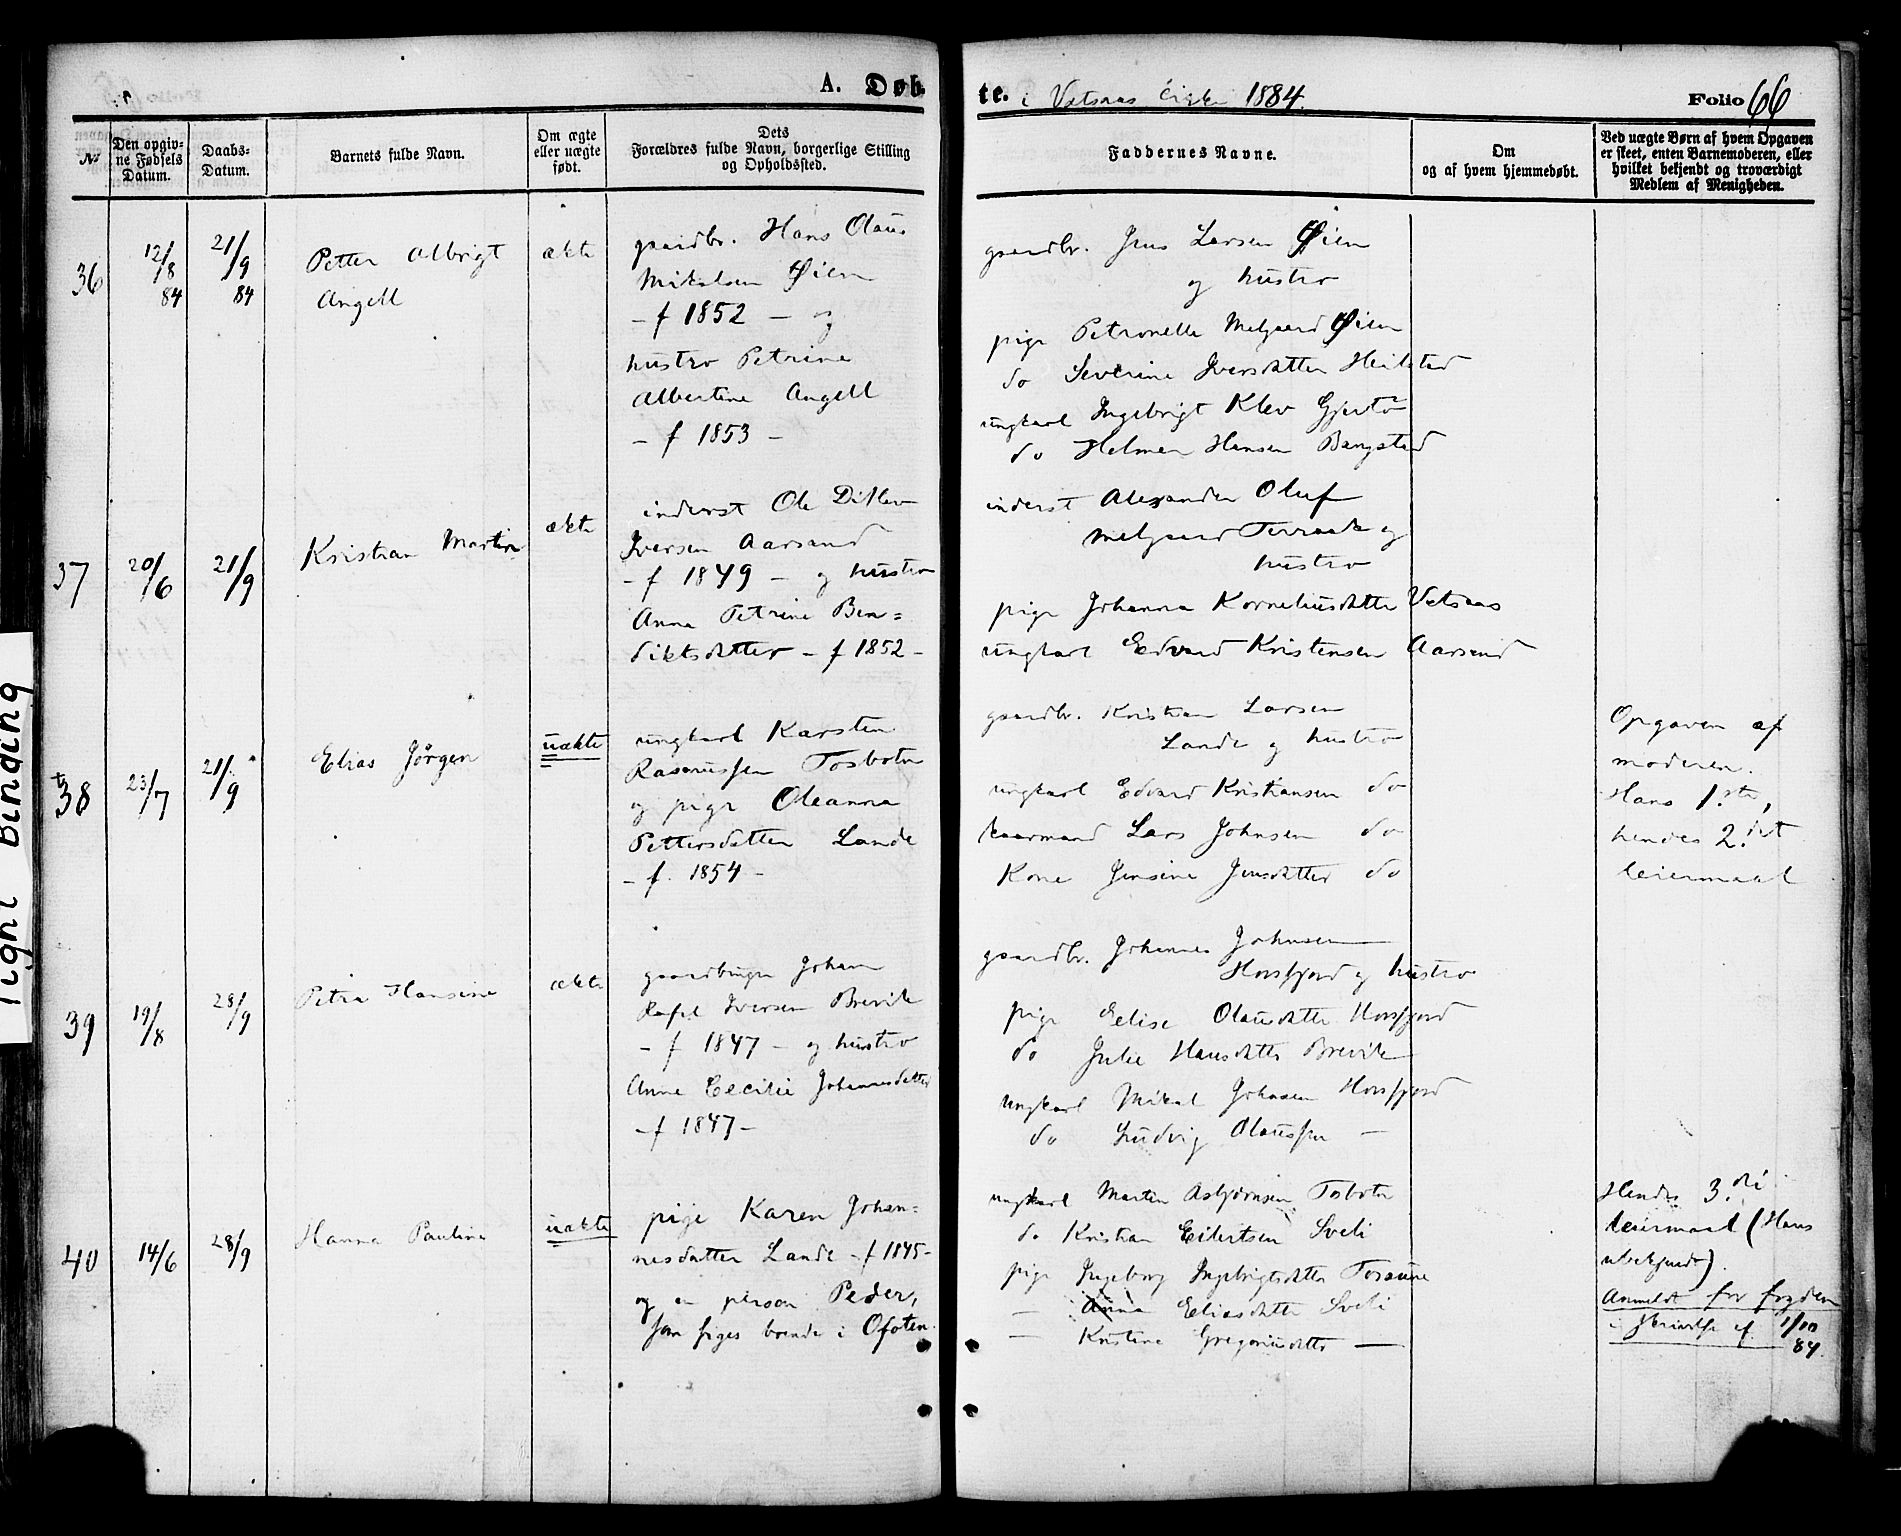 A. Døbte. i Vatsaas kirke 1884.
Folio 66
No
Den opgivne Fødsels Datum.
Daabs-Datum.
Barnets fulde Navn.
Om ægte eller uægte født.
Dets Forældres fulde Navn, borgerlige Stilling og Opholdssted.
Faddernes Navne.
Om og af hvem hjemmedøbt.
Ved uægte Børn af hvem Opgaven er skeet, enten Barnemoderen, eller hvilket bekjendt og troværdigt Medlem af Menigheden.
36
12/8 84
21/9 84
Petter Albrigt
Angell
ækte
gaardbr. Hans Olaus
Mikalsen Øien
- f 1852 - og
hustro Petrine
Albertine Angell
- f 1853 -
gaardbr. Jens Larsen Øien
og hustro
pige Petronelle Melgaard Øien
do Severine Iversdatter Heilstad
ungkarl Ingebrigt Klev Gjertø
do Helmer Hansen Bangstad
37
20/6
21/9
Kristian Martin
ækte
inderst Ole Ditlev
Iversen Aarsand
- f 1849 - og hustro
Anna Petrine Ben=
diktsdatter - f 1852 -
inderst Alexander Oluf
Melgaard Terraak og
hustro
pige Johanna Korneliusdatter Vatsaas
ungkarl Edvard Kristensen Aarsand
38
23/7
21/9
Elias Jørgen
uækte
ungkarl Karsten
Rasmussen Tosbotn
og pige Oleanna
Pettersdatter Lande
- f. 1854 -
gaardbr. Kristian Larsen
Lande og hustro
ungkarl Edvard Kristiansen do
kaarmand Lars Johnsen do
Kone Jensine Jensdatter do
Opgaven af
moderen.
Hans 1.ste,
hendes 2.det
leiermaal
39
19/8
28/9
Petra Hansine
ækte
gaardbruger Johan
Rafel Iversen Brevik
- f 1847 - og hustro
Anne Cecilie Johannesdatter
- f 1847 -
gaardbr. Johannes Johnsen
Horsfjord og hustro
pige Eelise Olausdatter Horsfjord
do Julie Hansdatter Brevik
ungkarl Mikal Johnsen Horsfjord
do Ludvig Olaussen —
40
14/6
28/9
Hanna Pauline
uækte
pige Karen Johan=
nesdatter Lande - f 1845 -
og en person Peder,
som siges boende i Ofoten.
ungkarl Martin Asbjørnsen Tosbotn
do Kristian Eilertsen Sveli
pige Ingeborg Ingebrigtsdatter Tosaune
— Anna Eliasdatter Sveli
— Kristine Gregoriusdatter —
Hendes 3.die
leiermaal (Hans
ubekjendt).
Anmeldt for fogden
i skrivelse af 1/10
84.
Tight Binding